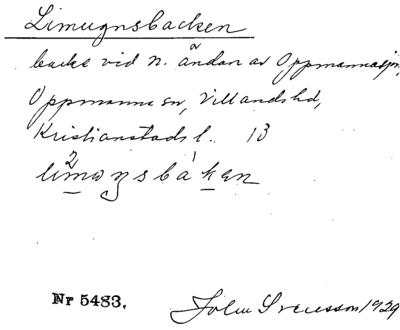 Limugnsbacken
backe vid n. ändan av Oppmannasjön,
Oppmanna sn, Villands hd,
Kristianstads l. 13
Nr 5483. John Svensson 1929